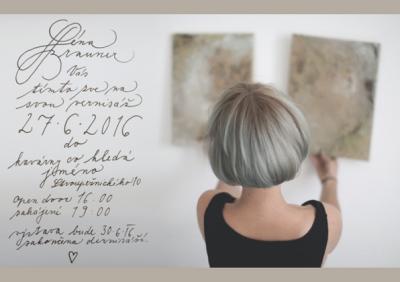 Léna
Brauner
Vás
tímto zve na
svou vernisáž
27.6.2016
do
kavárny co hledá
jméno
Stroupežnického 10
open door 16:00
zahájení 19:00
výstava bude 30.6.16
zakončena dernisáží.